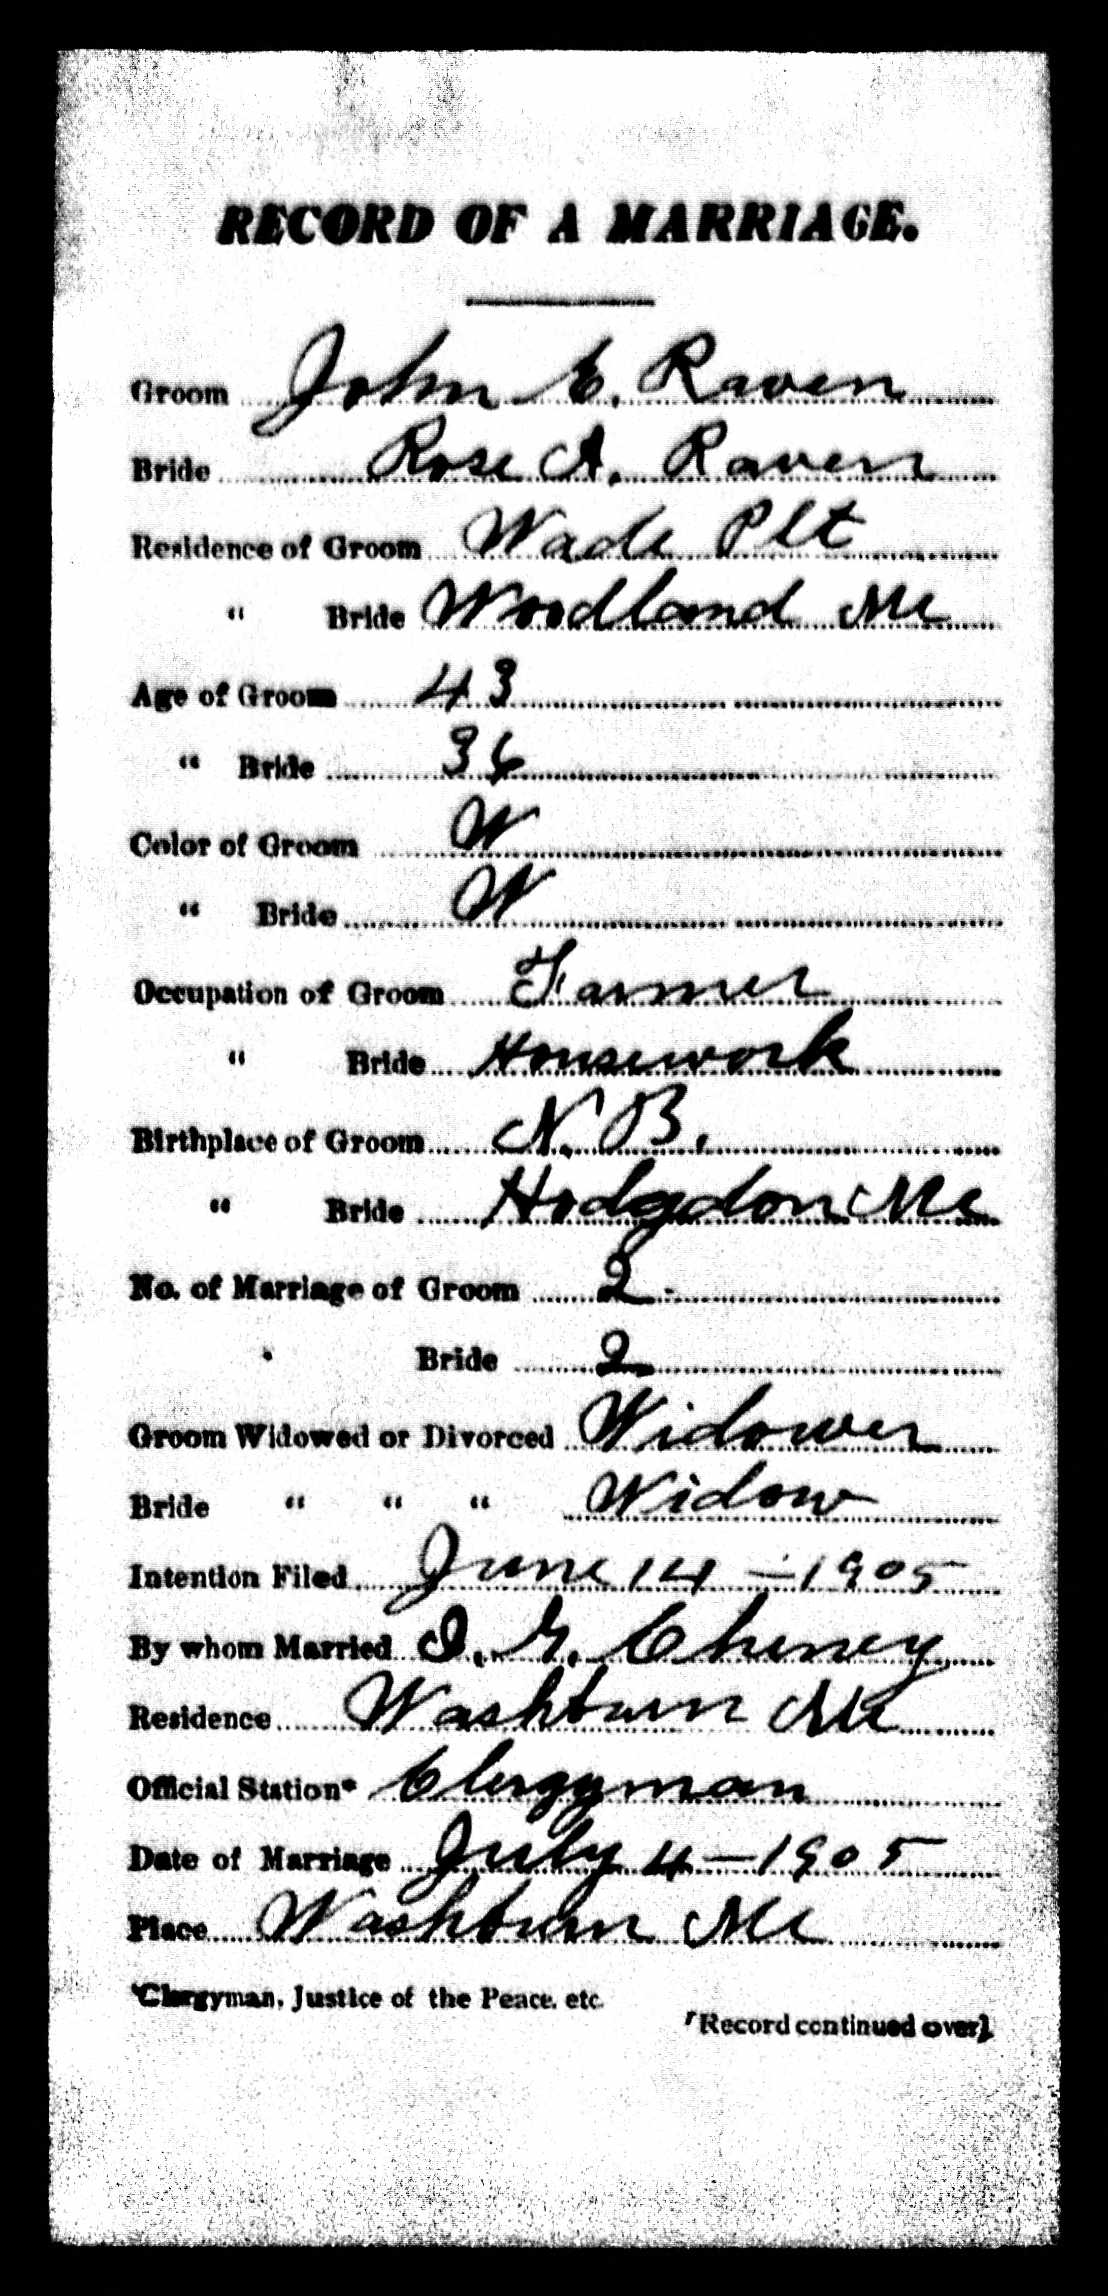 RECORD OF A MARRIAGE.
Groom John E. Raven
Bride Rose A. Raven
Residence of Groom Wade Plt
" Bride Woodland Me
Age of Groom 43
" Bride 36
Color of Groom W
" Bride W
Occupation of Groom Farmer
" Bride Housework
Birthplace of Groom N. B.
" Bride Hodgdon Me
No. of Marriage of Groom 2
" Bride 2
Groom Widowed or Divorced Widower
Bride " " " Widow
Intention Filed June 14 - 1905
By whom Married I. G. Cheney
Residence Washburn Me
Official Station* Clergyman
Date of Marriage July 4 - 1905
Place Washburn Me
*Clergyman, Justice of the Peace, etc.
[Record continued over]